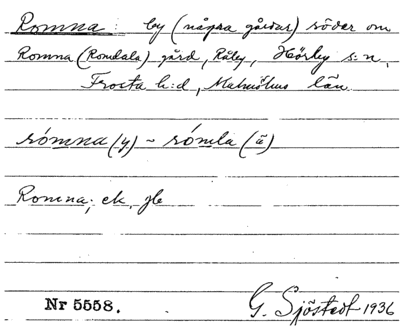 Romna: by (några gårdar) söder om
Romna (Romdala) gård, Råby, Hörby s:n,
Frosta h:d, Malmöhus län.
rómna (y) ~ rómla (ä)
Romna; ek. jb
Nr 5558. G. Sjöstedt 1936